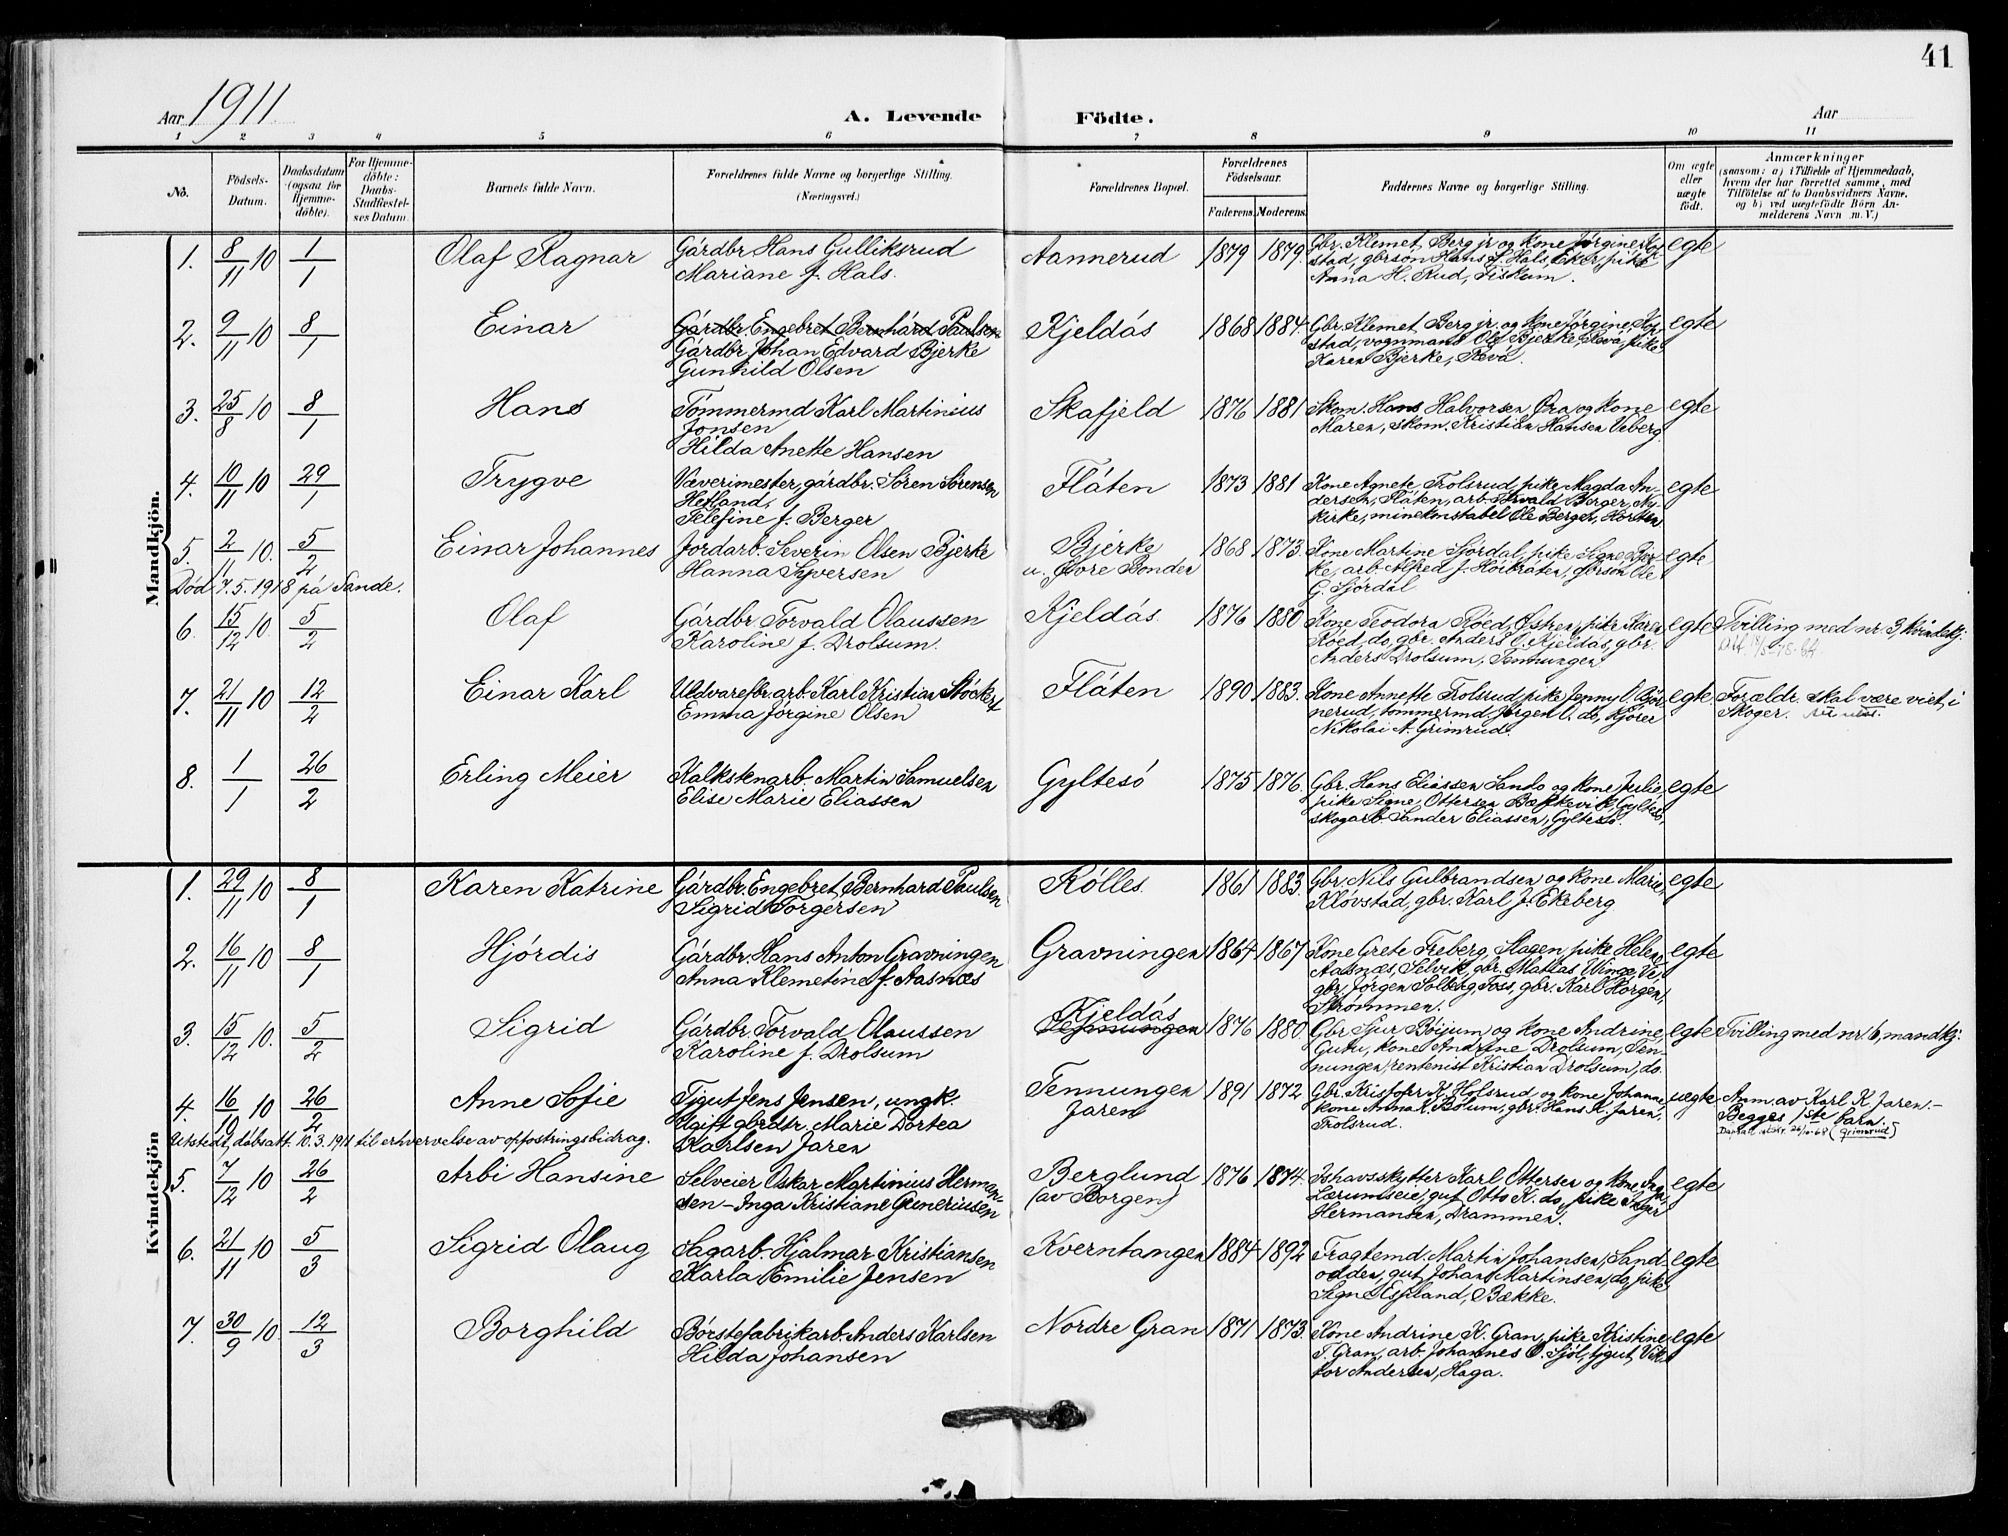 41
Aar 1911
A. Levende Födte.
Aar
1 2 3 4 5 6 7 8 9 10 11
No.
Födsels-
Datum.
Daabsdatum
(ogsaa for
Hjemme-
döbte).
For Hjemme-
döbte:
Daabs-
Stadfæstel-
ses Datum.
Barnets fulde Navn.
Forældrenes fulde Navne og borgerlige Stilling.
(Næringsvei.)
Forældrenes Bopæl.
Forældrenes
Födselsaar.
Faderens. Moderens.
Faddernes Navne og borgerlige Stilling.
Om ægte
eller
uægte
födt.
Anmærkninger
(saasom: a) i Tilfælde af Hjemmedaab,
hvem der har forrettet samme, med
Tilföielse af to Daabsvidners Navne,
og b) ved uægtefödte Börn An-
melderens Navn m. V.)
Mandkjön.
1. 8/11 10 1/1 Olaf Ragnar
Gárdbr. Hans Gulliksrud
Mariane f. Hals.
Aannerud 1879 1879.
Gbr. Klemet Berg jr. og kone Jørgine, Kok-
stad, gbrsøn Hans J. Hals, Eker, pike
Anna H. Rud, Fiskum.
egte
2. 9/11 10 8/1 Einar
Gárdbr. Engebret Bernhárd Paulsen
Gárdbr. Johan Edvard Bjerke
Gunhild Olsen
Kjeldás 1868 1884.
Gbr. Klemet Berg jr. og kone Jørgine, Kok-
stad, vognmand Ole Bjerke, Revá, pike
Karen Bjerke, Revá.
egte
3. 25/8 10 8/1 Hans
Tömmermd Karl Martinius
Jonsen
Hilda Anette Hansen
Skafjeld 1876 1881
Skom. Hans Halvorsen Øra og kone
Maren, skom. Kristian Hansen Veberg.
egte
4. 10/11 10 29/1 Trygve
Væverimester, gárdbr. Søren Sørensen
Hetland,
Telefine f. Berger
Fláten 1873 1881
Kone Agnete Trolsrud, pike Magda An-
dersen, Fláten, arb. Torvald Berger, Ny-
kirke, minekonstabel Ole Berger, Horten
egte
5. 2/11 10. 5/2 Einar Johannes
Jordarb. Severin Olsen Bjerke
Hanna Syversen
Bjerke
u. Øvre Bonden
1868 1873.
Kone Martine Sjórdal, pike Signe Bjer-
ke, arb. Alfred J. Höibráten, gbrsøn Ole
G. Sjórdal
egte
Död 7.5.1918 pá Sande.
6. 15/12 10. 5/2 Olaf
Gárdbr. Torvald Olaussen
Karoline f. Drolsum.
Kjeldás. 1876 1880
Kone Teodora Röed, Østren, pike Karen
Röed, do, gbr. Anders O. Kjeldás, gbr.
Anders Drolsum, Tennungen.
egte
Tvilling med nr. 3 kvindekj.
7. 21/11 10 12/2 Einar Karl
Uldvarefbr.arb. Karl Kristian Stöckert
Emma Jørgine Olsen
Fláten 1890 1883.
Kone Annette Trolsrud, pike Jenny O. Björ-
nerud, tømmermd. Jørgen O. do, kjører
Nikolai A. Grimsrud.
egte.
Forældr. skal være viet, i
Skoger.
8. 1/1 26/2 Erling Meier
Kalkstenarb. Martin Samuelsen
Elise Marie Eliassen
Gyltesó 1875 1876.
Gbr. Hans Eliassen Sando og kone Julie,
pike Signe Ottersen Bækkevik, Gyltesó,
skogarb. Sander Eliassen, Gyltesó.
egte
Kvindekjön
1. 29/11 10 8/1 Karen Katrine
Gárdbr. Engebret Bernhard Paulsen
Sigrid Torgersen
Rólles. 1861 1883.
Gbr. Nils Gulbrandsen og kone Marie,
Klóvstad, gbr. Karl J. Ekeberg
egte
2. 16/11 10 8/1 Hjórdis
Gárdbr. Hans Anton Gravningen
Anna Klemetine f. Aasnæs
Gravningen 1864 1867
Kone Grete Freberg, Slagen, pike Helene
Aasnæs, Selvik, gbr. Matias Unge, Vá-
gbr. Jørgen Solberg, Foss, gbr. Karl Horgen,
Strømmen.
egte
3. 15/12 10. 5/2 Sigrid
Gárdbr. Torvald Olaussen
Karoline f. Drolsum
Kjeldás
Tennungen
1876 1880.
Gbr. Sjur Böijum og kone Andrine,
Gutu, kone Andrine Drolsum, Ten-
nungen, rentenist Kristian Drolsum, do.
egte
Tvilling med nr. 6, mandkj.
4. 16/10 10 26/2 Anne Sofie
Tjgut Jens Jensen, ungk.
Ugift gbrdtr. Marie Dórtea
Karlsen Jaren
Tennungen
Jaren
1891 1872
Gbr. Kristofer K. Holsrud og kone Johanne,
kone Anna K. Böium, gbr. Hans K. Jaren,
Trolsrud.
uegte
Anm. av Karl K. Jaren.-
Begges 1ste barn.
(Grimsrud)
Utstedt dåbsatt. 10.3.1911 til erhvervelse av opfostringsbidrag.
5. 7/12 10 26/2 Arbi Hansine
Selveier Oskar Martinius Herman-
sen – Inga Kristiane Guneriusen
Berglund
(av Borgen)
1876 1874.
Ishavsskytter Karl Ottersen og kone Inga,
Lærumseie, gut Otto K. do, pike Inger
Hermansen, Drammen.
egte
6. 21/11 10 5/3 Sigrid Olaug
Sagarb. Hjalmar Kristiansen
Karla Emilie Jensen
Kverntangen 1884 1892
Fragtemd. Martin Johansen, Sand-
odden, gut Johan Martinsen, do, pike
Signe Espeland, Bække.
egte
7. 30/9 10 12/3 Borghild
Børstefabrikarb. Anders Karlsen
Hilda Johansen
Nordre Gran 1871 1873.
Kone Andrine K. Gran, pike Kristine
T. Gran, arb. Johannes O. Sjöl, tjgut Vik-
tor Andersen, Haga.
egte